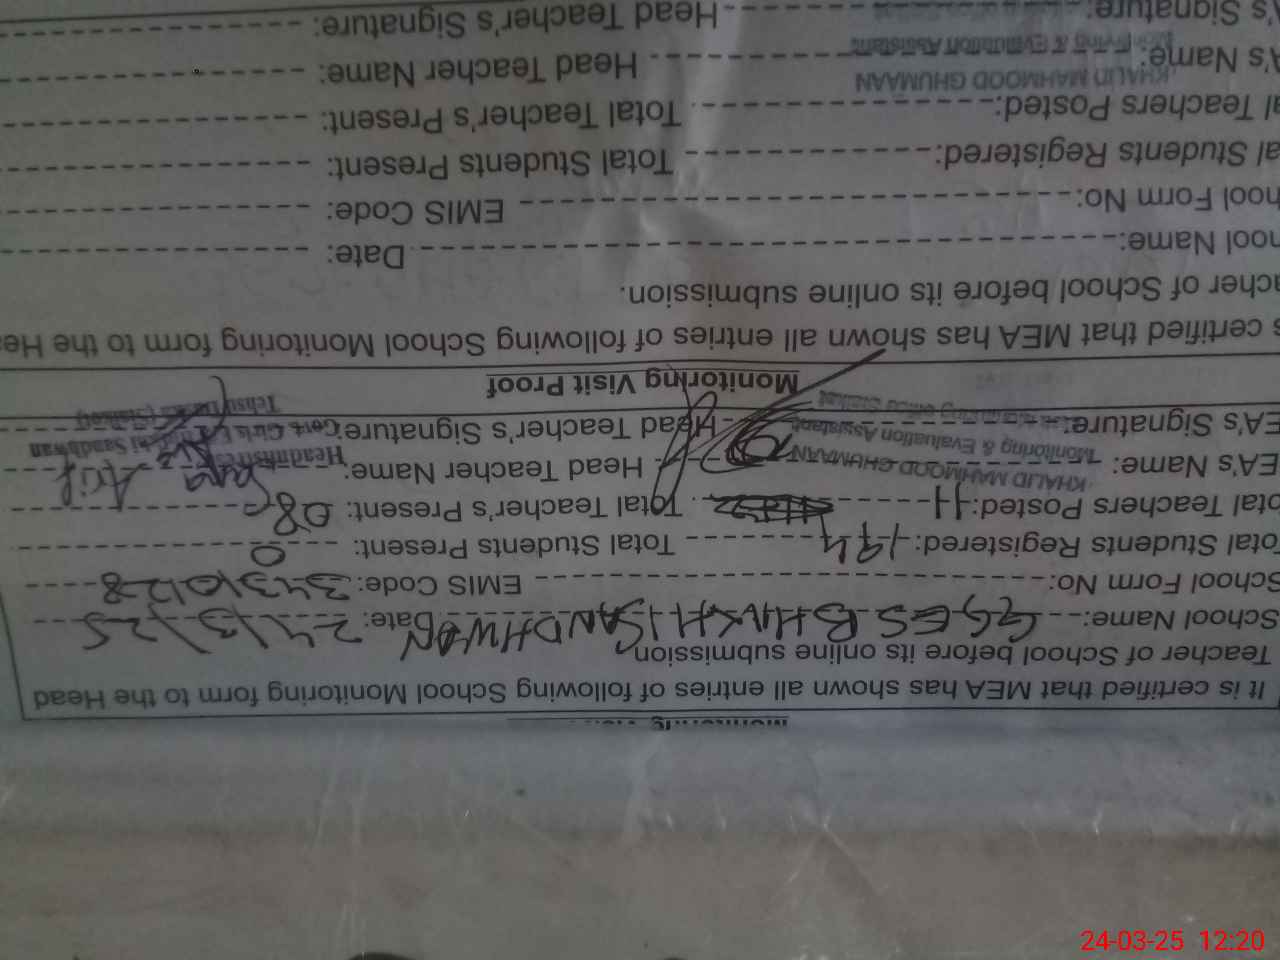 It is certified that MEA has shown all entries of following School Monitoring form to the Head
Teacher of School before its online submission
School Name: GGES BHIKHI SANDHWAN Date: 24/3/25
School Form No: EMIS Code: 34310128
Total Students Registered: 194 Total Students Present: 0
Total Teachers Posted: 11 Total Teacher's Present: 08
EA'S Name: KHALID MAHMOOD GHUMAAN Head Teacher Name: Sana Arif
Monitoring & Evaluation Assistant
EA'S Signature: Head Teacher's Signature:
Headmistress
Govt. Girls
Monitoring Visit Proof
s certified that MEA has shown all entries of following School Monitoring form to the Hea
acher of School before its online submission.
hool Name: Date:
hool Form No: EMIS Code:
al Students Registered: Total Students Present:
al Teachers Posted: Total Teacher's Present:
KHALID MAHMOOD GHUMAAN
A's Name: Head Teacher Name:
Monitoring & Evaluation Assistant
A's Signature: Head Teacher's Signature:
24-03-25 12:20